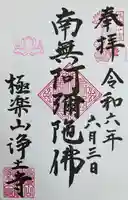 奉拝
令和六年
六月三日
南無阿彌陀佛
極楽山浄土寺